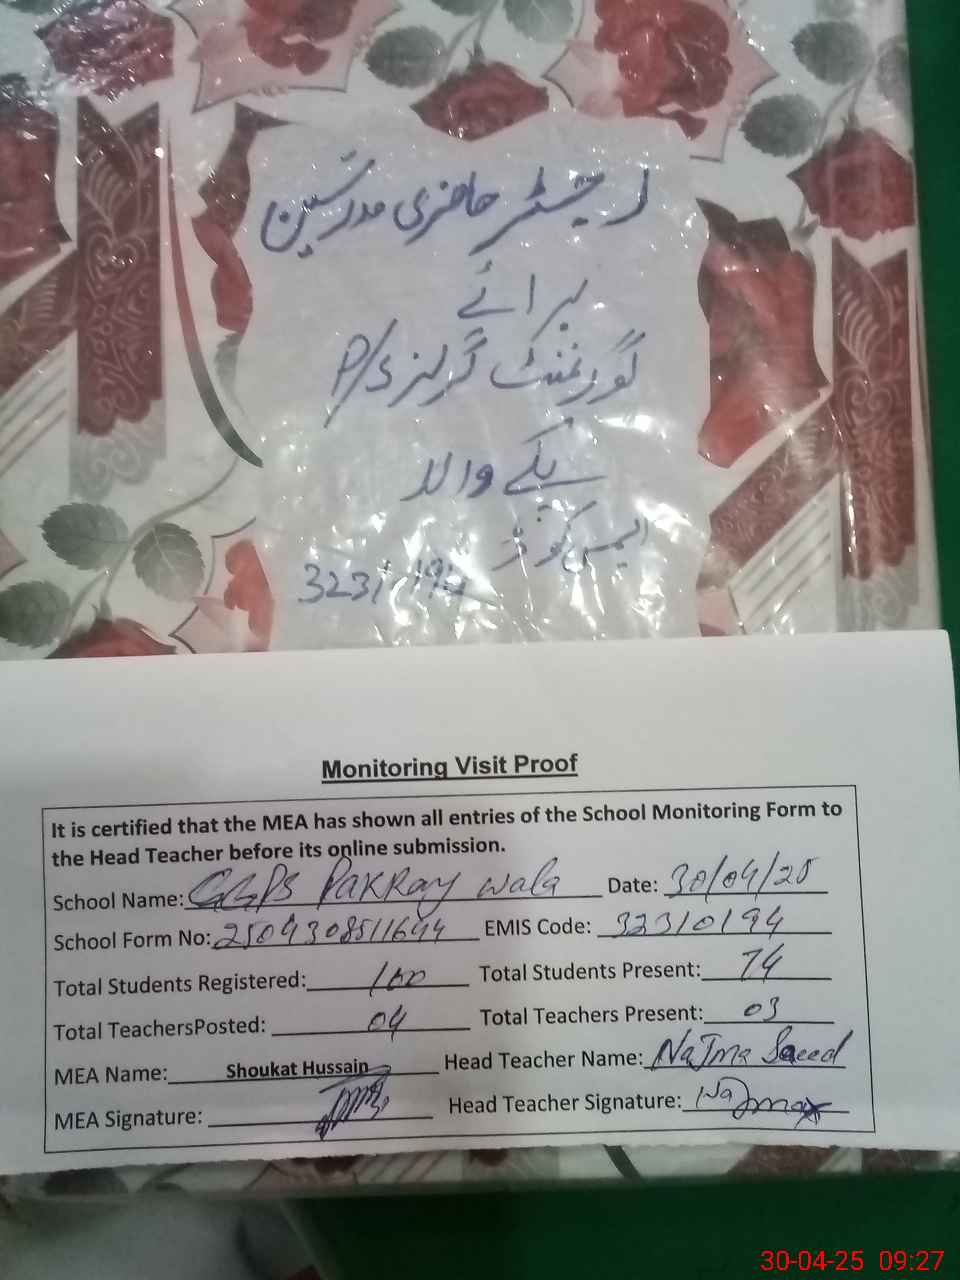 رجسٹر حاضری مدرسین
برائے
گورنمنٹ گرلز P/S
پکے والا
ایمس کوڈ
Monitoring Visit Proof
It is certified that the MEA has shown all entries of the School Monitoring Form to
the Head Teacher before its online submission.
School Name: GGPS PAKRay wala Date: 30/04/25
School Form No: 2504308511644 EMIS Code: 32310194
Total Students Registered: 100 Total Students Present: 74
Total TeachersPosted: 04 Total Teachers Present: 03
MEA Name: Shoukat Hussain Head Teacher Name: NaJma Saeed
MEA Signature: Head Teacher Signature: Najma
30-04-25 09:27